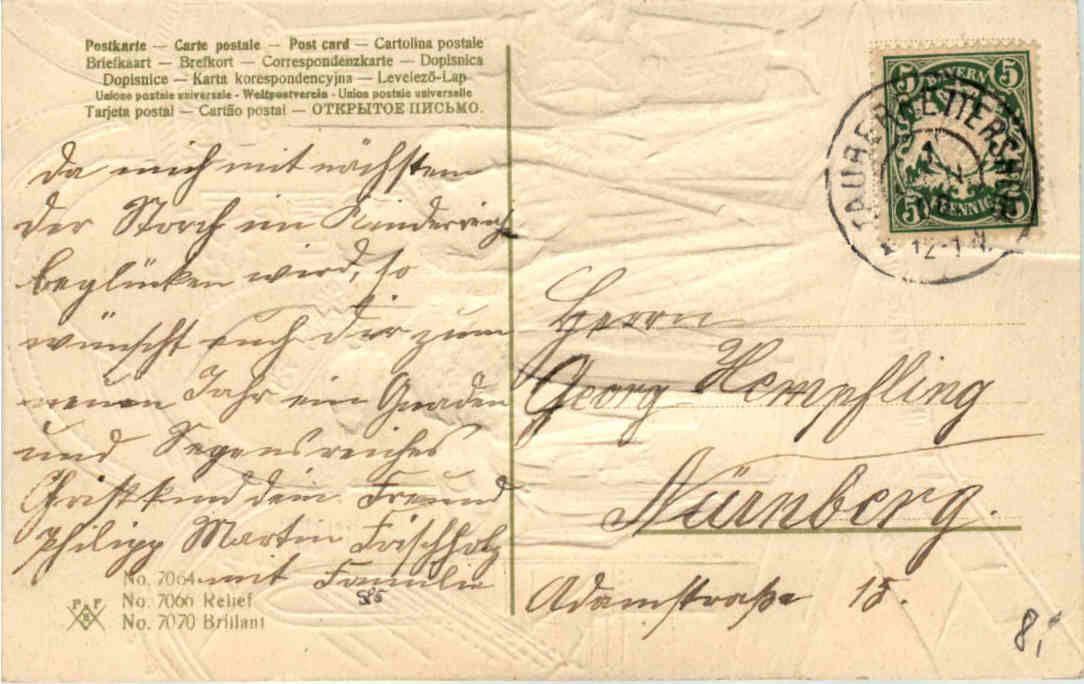 Postkarte — Carte postale — Post card — Cartolina postale
Briefkaart — Brefkort — Correspondenzkarte — Dopisnica
Dopisnice — Karta korespondencyjna — Levelező-Lap
Unione postale universale - Weltpostverein - Union postale universelle
Tarjeta postal — Cartão postal — ОТКРЫТОЕ ПИСЬМО.
Da mich mit nächstem
der Storch im Kinderreich
beglücken wird, so
wünscht euch dir zum
neuen Jahr ein Gnaden
und Segensreiches
Christkind dein Freund
Philipp Martin Frischholz
mit Familie
No. 7064
No. 7066 Relief
No. 7070 Brillant
585
5 BAYERN 5
5 PFENNIG 5
TAUBERRETTERSHEIM
12-1 N.
Herrn
Georg Hempfling
Nürnberg.
Adamstraße 15.
8,-